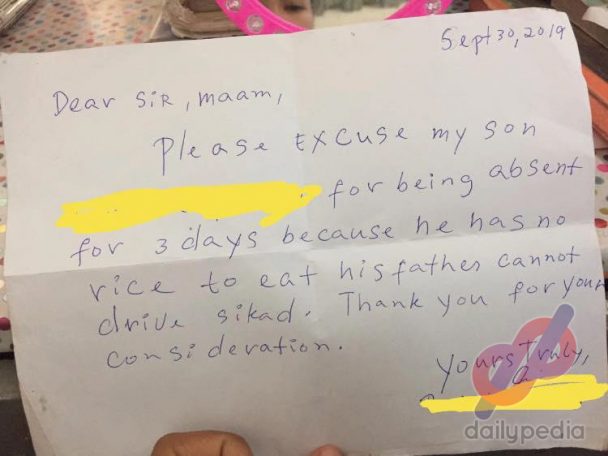 Sept 30, 2019
Dear Sir, maam,
Please Excuse my son
for being absent
for 3 days because he has no
rice to eat his father cannot
drive sikad. Thank you for your
consideration.
Yours Truly,
dailypedia